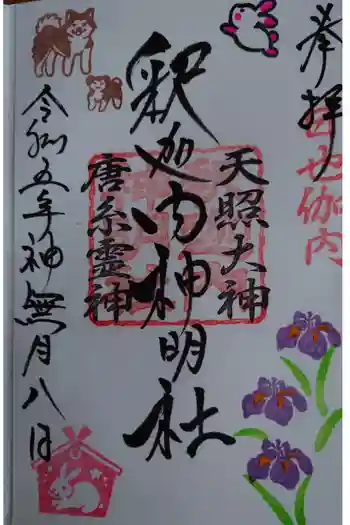 奉拝
天照大神
釈迦内神明社
唐糸霊神
令和五年神無月八日